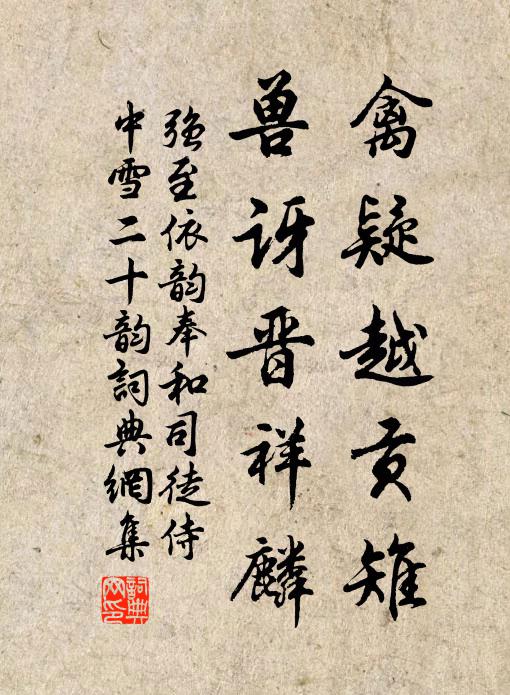 禽疑越贡雉
兽讶晋祥麟
强至依韵奉和司徒侍
中雪二十韵詞典網集